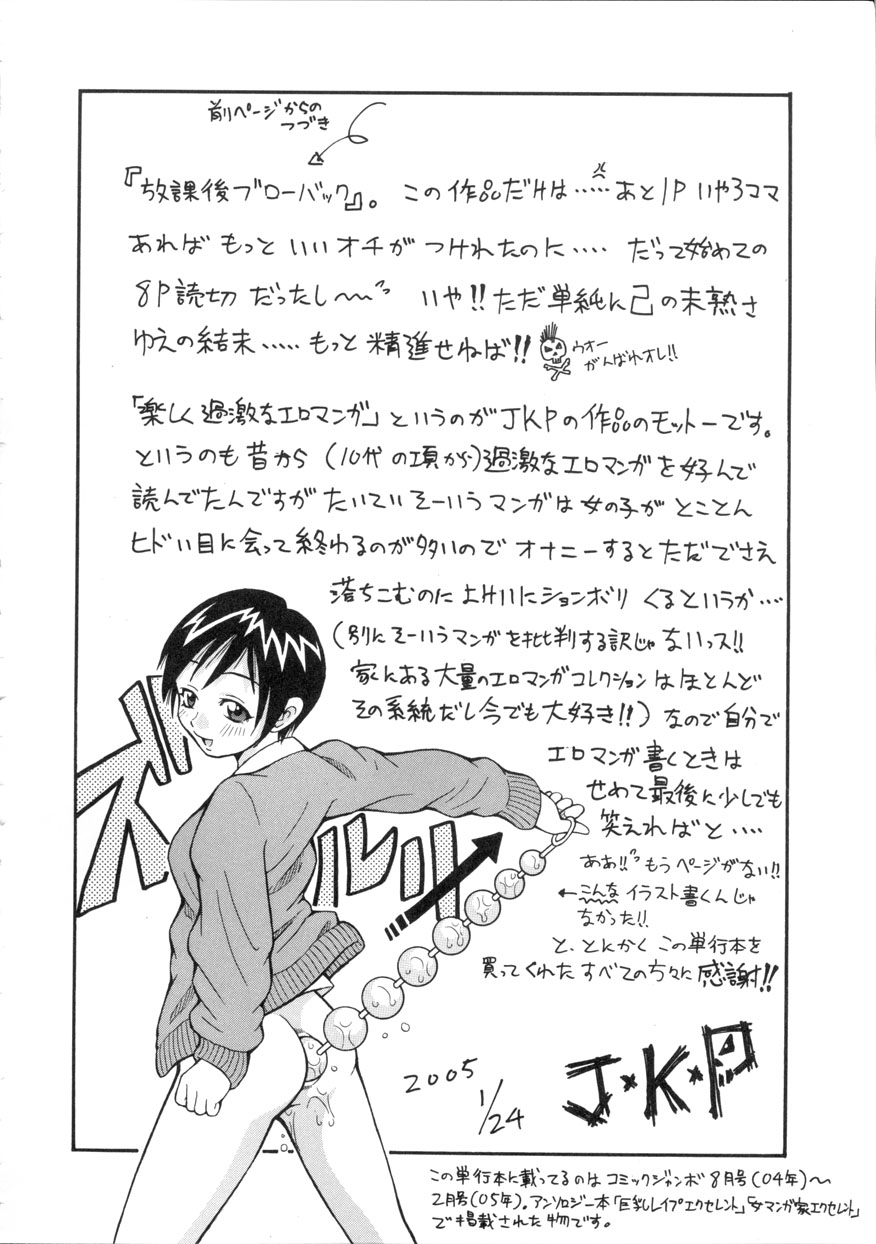 前ページからの
つづき
『放課後ブローバック』。この作品だけは……あと1P いや3コマ
あれば もっと いい オチが つけれたのに…. だって始めての
8P読切 だったし〜〜 いや!! ただ単純に己の未熟さ
ゆえの結末…… もっと 精進せねば!!
ウオー
がんばれオレ!!
「楽しく過激なエロマンガ」というのがJKPの作品のモットーです。
というのも昔から (10代の項から)過激なエロマンガを好んで
読んでたんですが たいていそーいうマンガは女の子が とことん
ヒドい目に会って終わるのが多いので オナニーするとただでさえ
落ちこむのに よけいにションボリ くるというか….
(別にそーいうマンガを批判する訳じゃないっス!!
家にある大量のエロマンガコレクションはほとんど
その系統だし今でも大好き!!) なので自分で
エロマンガ書くときは
せめて最後に少しでも
笑えればと….
ああ!! もうページがない!!
←こんな イラスト書くんじゃ
なかった!!
と、とにかく この単行本を
買ってくれた すべての方々に 感謝!!
ズルルリ
2005
1/24
J★K★P
この単行本に載ってるのは コミックジャンボ 8月号(04年)〜
2月号(05年)。アンソロジー本「巨乳レイプエクセレント」「女マンガ家エクセレント」
で掲載された物です。